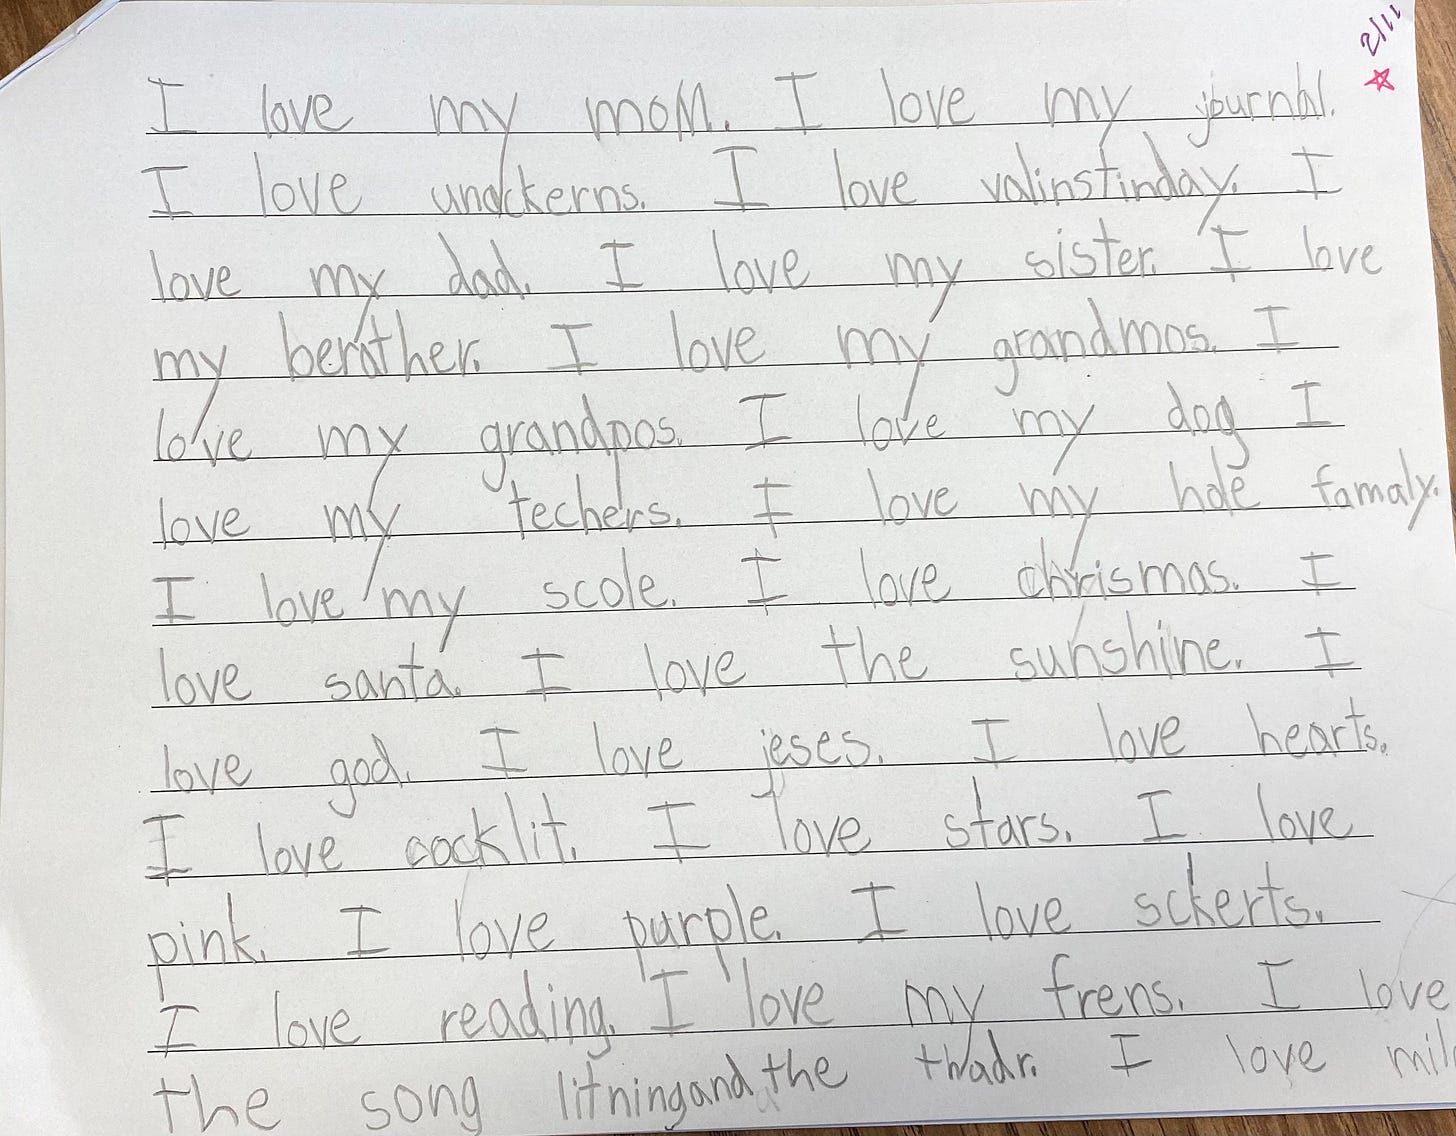 2/11
I love my moM. I love my journal.
I love undckerns. I love valinstinday. I
love my dad. I love my sister. I love
my berother. I love my grandmos. I
love my grandpos. I love my dog I
love my techers. I love my hole famaly.
I love my scole. I love chrismas. I
love santa. I love the sunshine. I
love god. I love jeses. I love hearts.
I love cocklit. I love stars. I love
pink. I love purple. I love sckerts.
I love reading. I love my frens. I love
the song litningand the thadr. I love